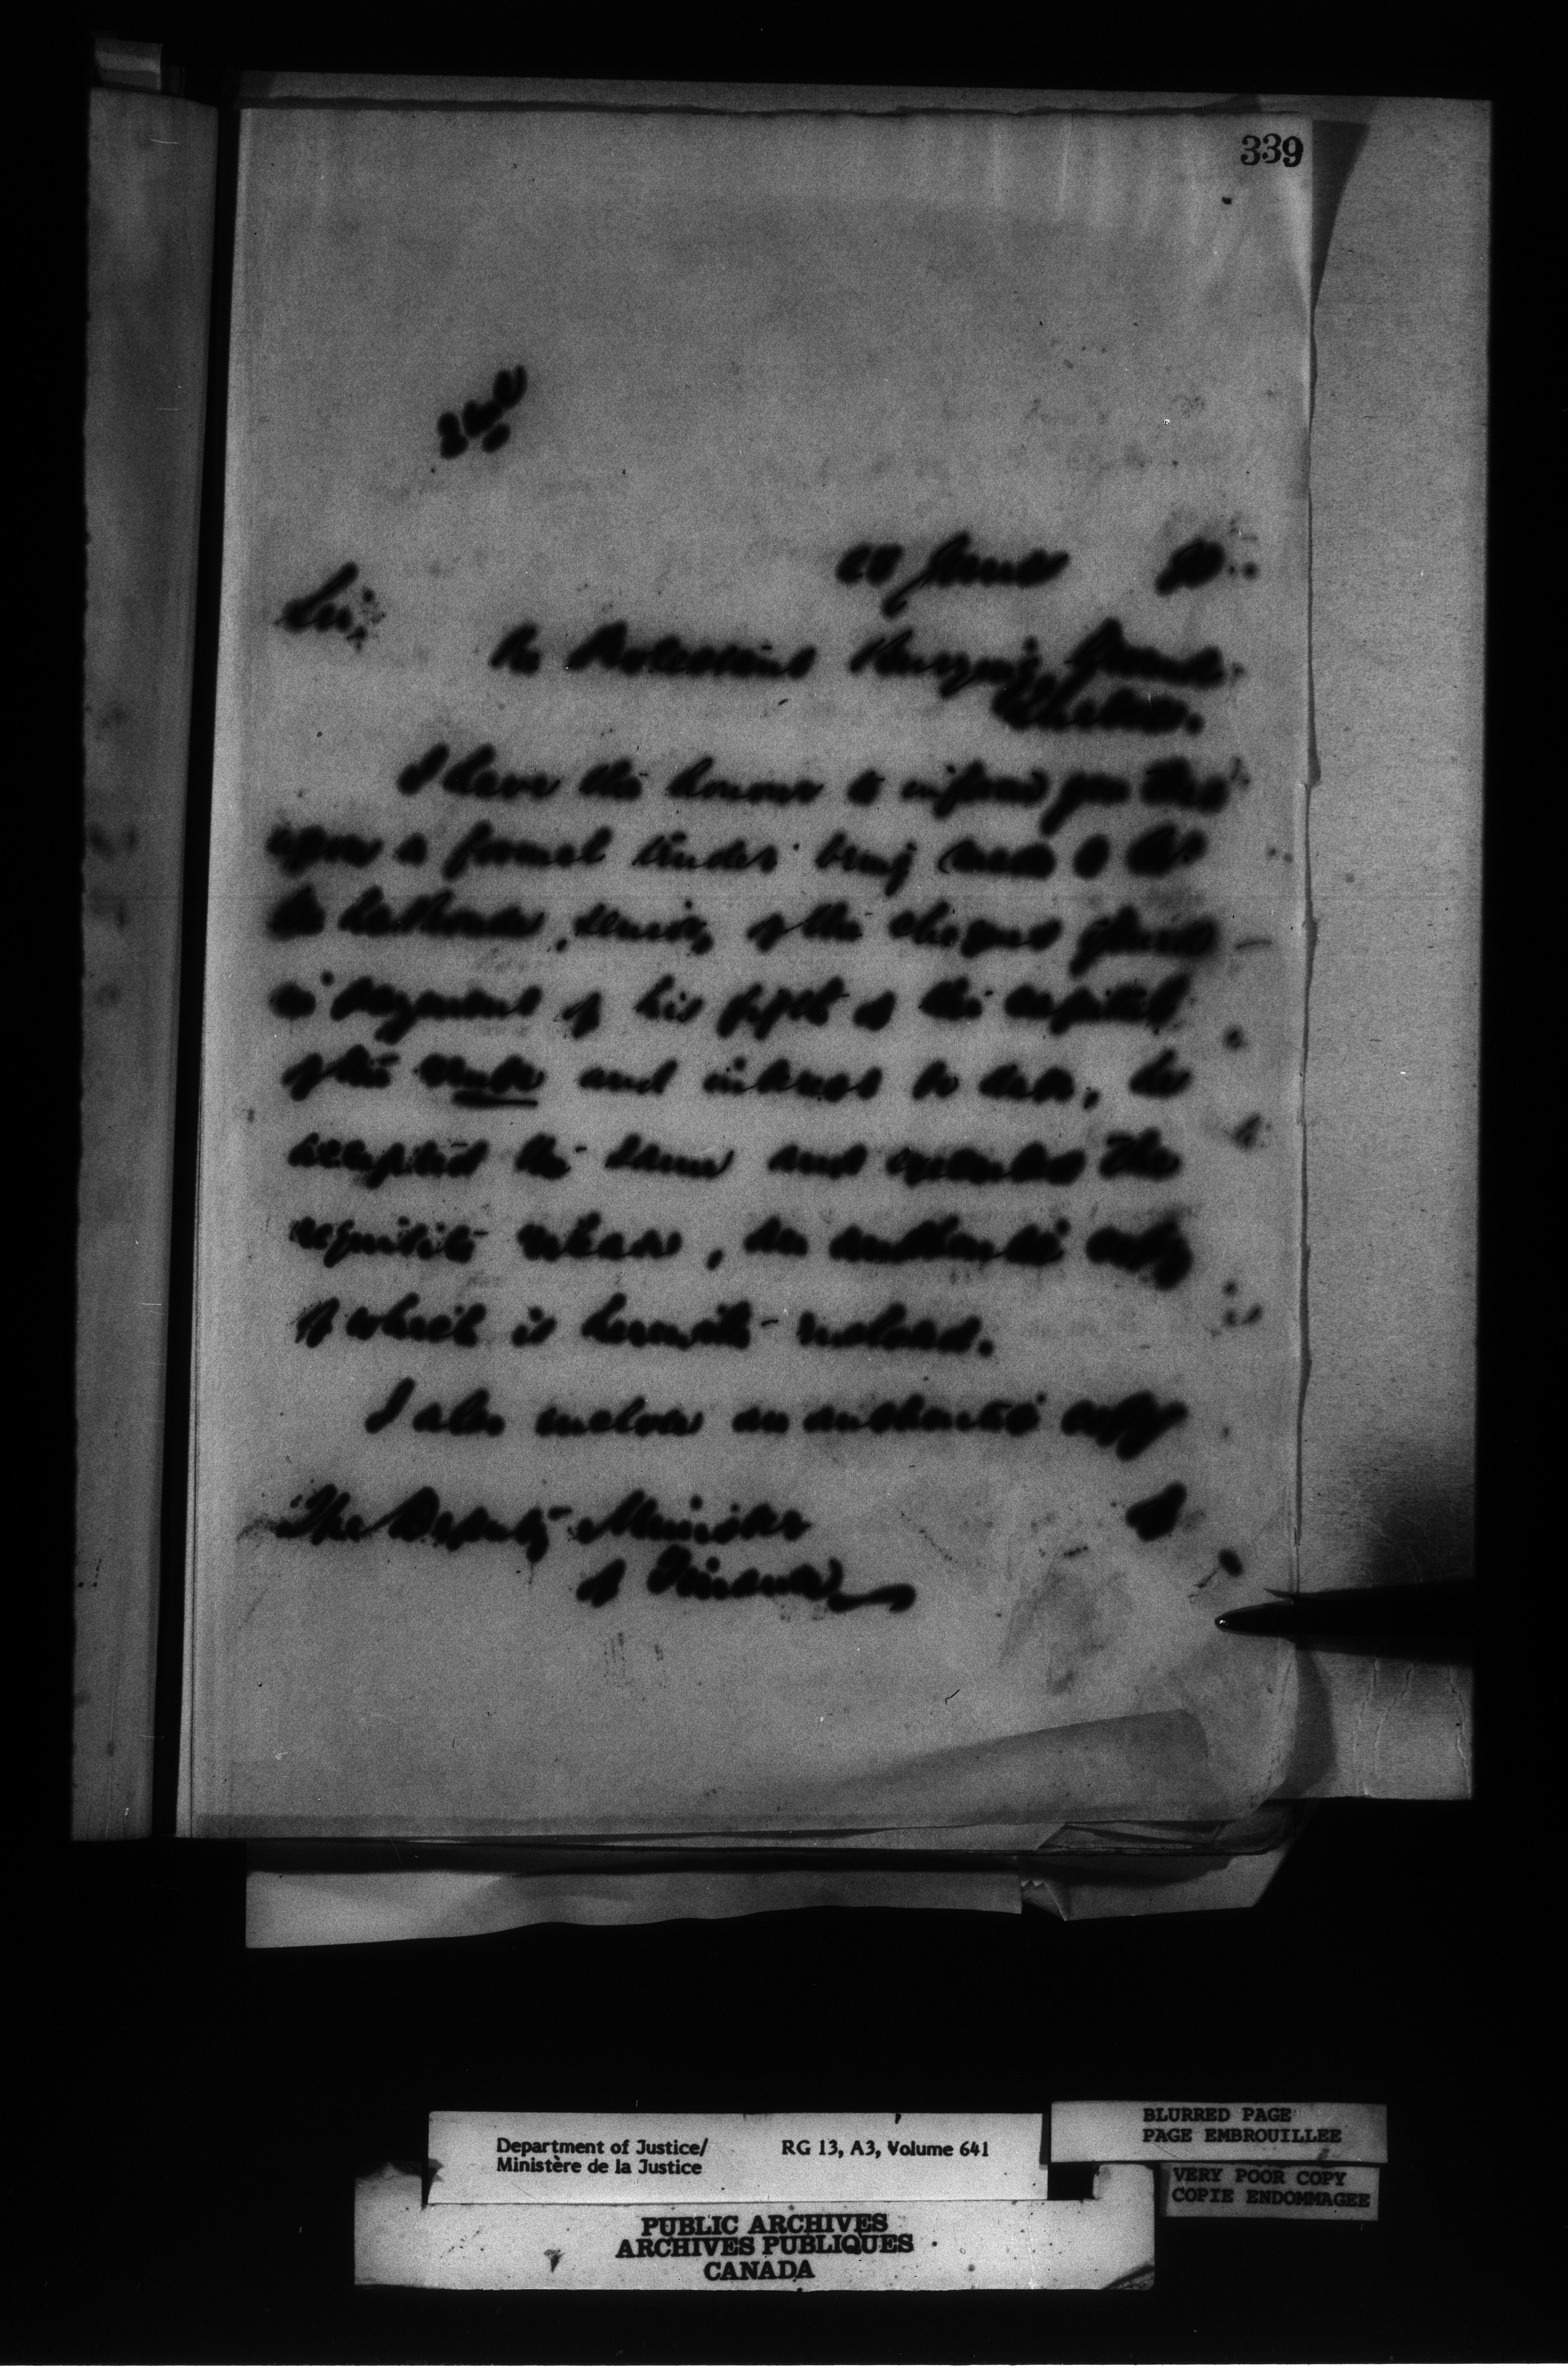 339
Sir,
Re Protestant Burying Ground
I have the honour to inform you that
upon a formal tender being made to
senior, of the cheque
in payment of his fifth of the capital
of the rente and interest to date, he
accepted the same and executed the
requisite release, an authentic copy
of which is herewith enclosed.
I also enclose an authentic copy
The Deputy Minister
of Finance
Department of Justice/ RG 13, A3, Volume 641
Ministère de la Justice
BLURRED PAGE
PAGE EMBROUILLEE
VERY POOR COPY
COPIE ENDOMMAGEE
PUBLIC ARCHIVES
ARCHIVES PUBLIQUES
CANADA